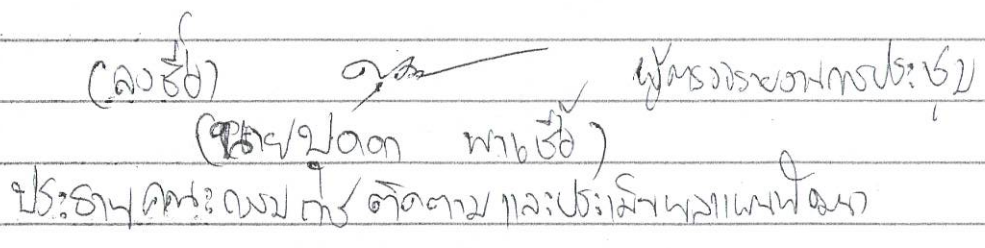 (ลงชื่อ) ผู้ตรวจรายงานการประชุม
(นาย พาเชื้อ)
ประธานคณะกรรมการติดตามและประเมินผลแผนพัฒนา